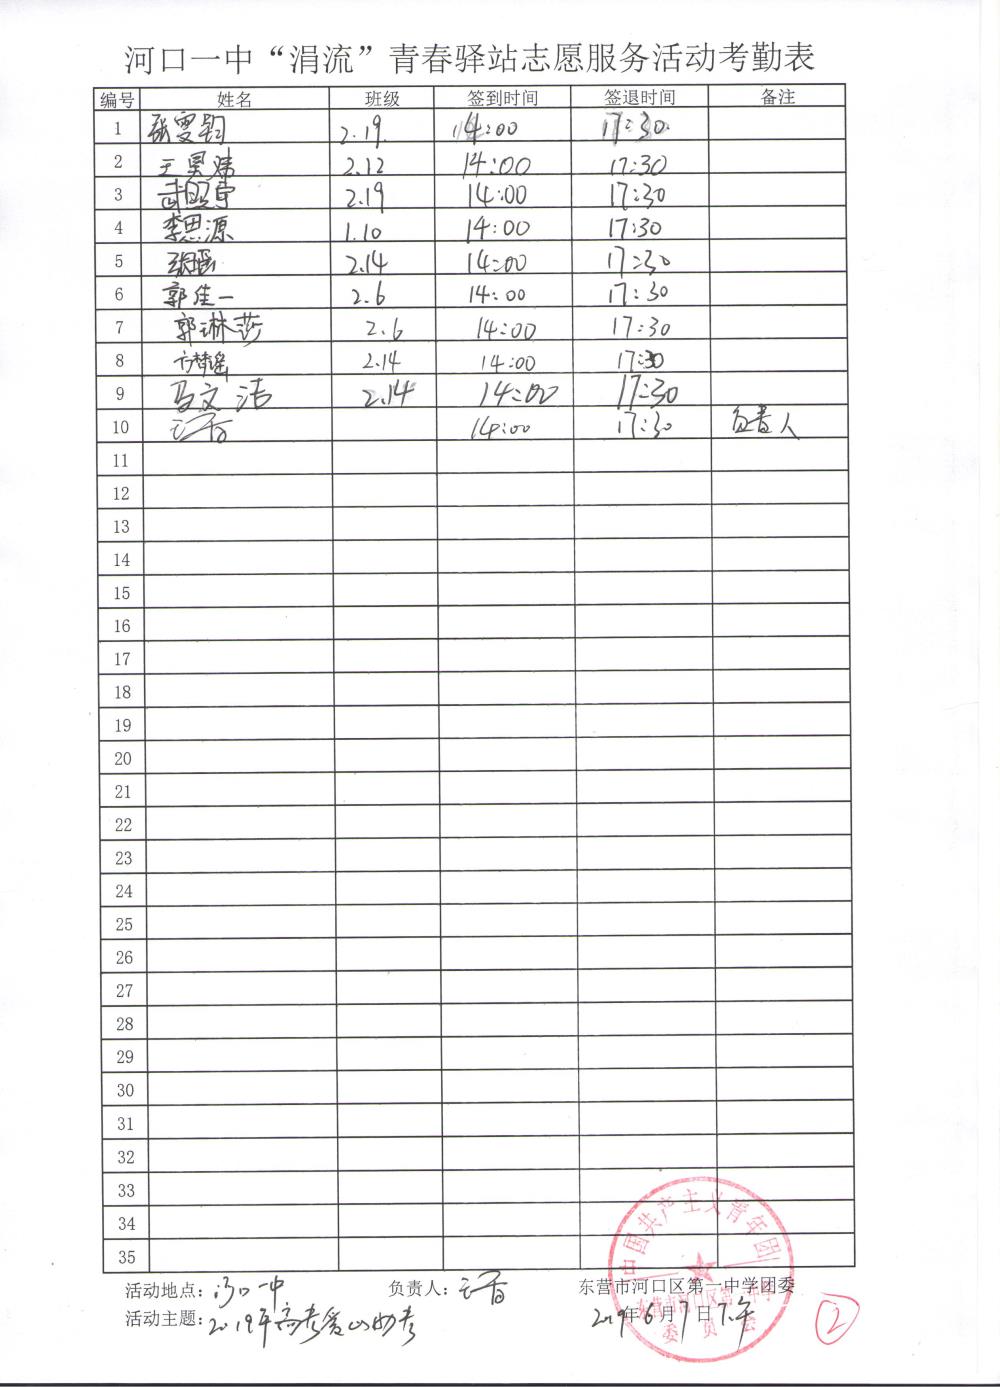 河口一中“涓流”青春驿站志愿服务活动考勤表
编号 姓名 班级 签到时间 签退时间 备注
1 张雯钧 2.19. 14:00 17:30.
2 王昊炜 2.12 14:00 17:30
3 2.19 14:00 17:30
4 李思源 1.10 14:00 17:30
5 2.14 14:00 17:30
6 郭佳一 2.6 14:00 17:30
7 郭琳莎 2.6 14:00 17:30
8 2.14 14:00 17:30
9 马文洁 2.14 14:00 17:30
10 14:00 17:30 负责人
11
12
13
14
15
16
17
18
19
20
21
22
23
24
25
26
27
28
29
30
31
32
33
34
35
中国共产主义青年团
东营市河口区第一中学
委员会
活动地点：河口一中 负责人： 东营市河口区第一中学团委
活动主题：2019年高考爱心助考 2019年6月7日下午
2